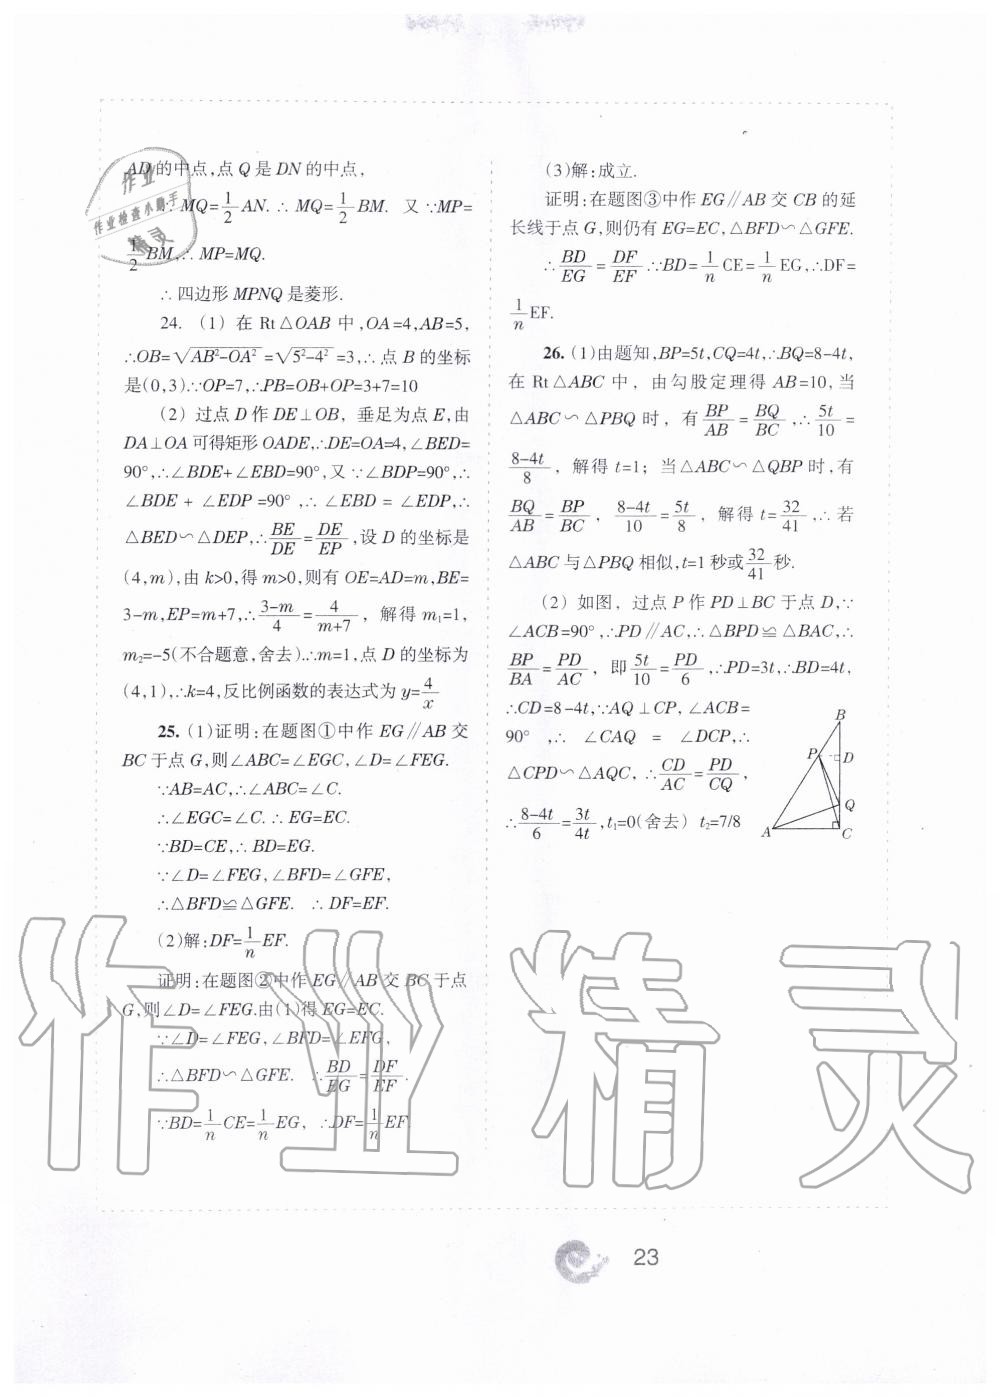 AD的中点,点Q是DN的中点,
∴MQ=1/2 AN.∴MQ=1/2 BM. 又∵MP=
1/2 BM,∴MP=MQ.
∴四边形MPNQ是菱形.
24. (1) 在Rt△OAB中,OA=4,AB=5,
∴OB=√(AB²-OA²)=√(5²-4²)=3,∴点B的坐标
是(0,3)∵OP=7,∴PB=OB+OP=3+7=10
(2) 过点D作DE⊥OB, 垂足为点E,由
DA⊥OA可得矩形OADE,∴DE=OA=4,∠BED=
90°,∴∠BDE+∠EBD=90°,又∵∠BDP=90°,∴
∠BDE + ∠EDP =90° ,∴ ∠EBD = ∠EDP,∴
△BED∽△DEP,∴BE/DE=DE/EP,设D的坐标是
(4,m),由k>0,得m>0,则有OE=AD=m,BE=
3-m,EP=m+7,∴(3-m)/4=4/(m+7), 解得m₁=1,
m₂=-5(不合题意,舍去).∴m=1,点D的坐标为
(4,1),∴k=4,反比例函数的表达式为y=4/x
25. (1)证明:在题图①中作EG∥AB交
BC于点G,则∠ABC=∠EGC,∠D=∠FEG.
∵AB=AC,∴∠ABC=∠C.
∴∠EGC=∠C.∴EG=EC.
∵BD=CE,∴BD=EG.
∵∠D=∠FEG,∠BFD=∠GFE,
∴△BFD≌△GFE. ∴DF=EF.
(2)解:DF=1/n EF.
证明:在题图②中作EG∥AB交BC于点
G,则∠D=∠FEG.由(1)得EG=EC.
∵∠D=∠FEG,∠BFD=∠EFG,
∴△BFD∽△GFE. ∴BD/EG=DF/EF.
∵BD=1/n CE=1/n EG, ∴DF=1/n EF.
(3)解:成立.
证明:在题图③中作EG∥AB交CB的延
长线于点G,则仍有EG=EC,△BFD∽△GFE.
∴BD/EG=DF/EF ∵BD=1/n CE=1/n EG,∴DF=
1/n EF.
26. (1)由题知,BP=5t,CQ=4t,∴BQ=8-4t,
在Rt△ABC中, 由勾股定理得AB=10,当
△ABC∽△PBQ时, 有BP/AB=BQ/BC,∴5t/10=
(8-4t)/8, 解得t=1; 当△ABC∽△QBP时,有
BQ/AB=BP/BC, (8-4t)/10=5t/8, 解得t=32/41,∴若
△ABC与△PBQ相似,t=1秒或32/41秒.
(2) 如图, 过点P作PD⊥BC于点D,∵
∠ACB=90°,∴PD∥AC,∴△BPD≌△BAC,∴
BP/BA=PD/AC, 即5t/10=PD/6,∴PD=3t,∴BD=4t,
∴CD=8-4t,∵AQ⊥CP,∠ACB=
90° ,∴ ∠CAQ = ∠DCP,∴
△CPD∽△AQC, ∴CD/AC=PD/CQ,
∴(8-4t)/6=3t/4t,t₁=0(舍去) t₂=7/8
B
P
D
Q
A
C
作业
作业检查小助手
精灵
作业精灵
23